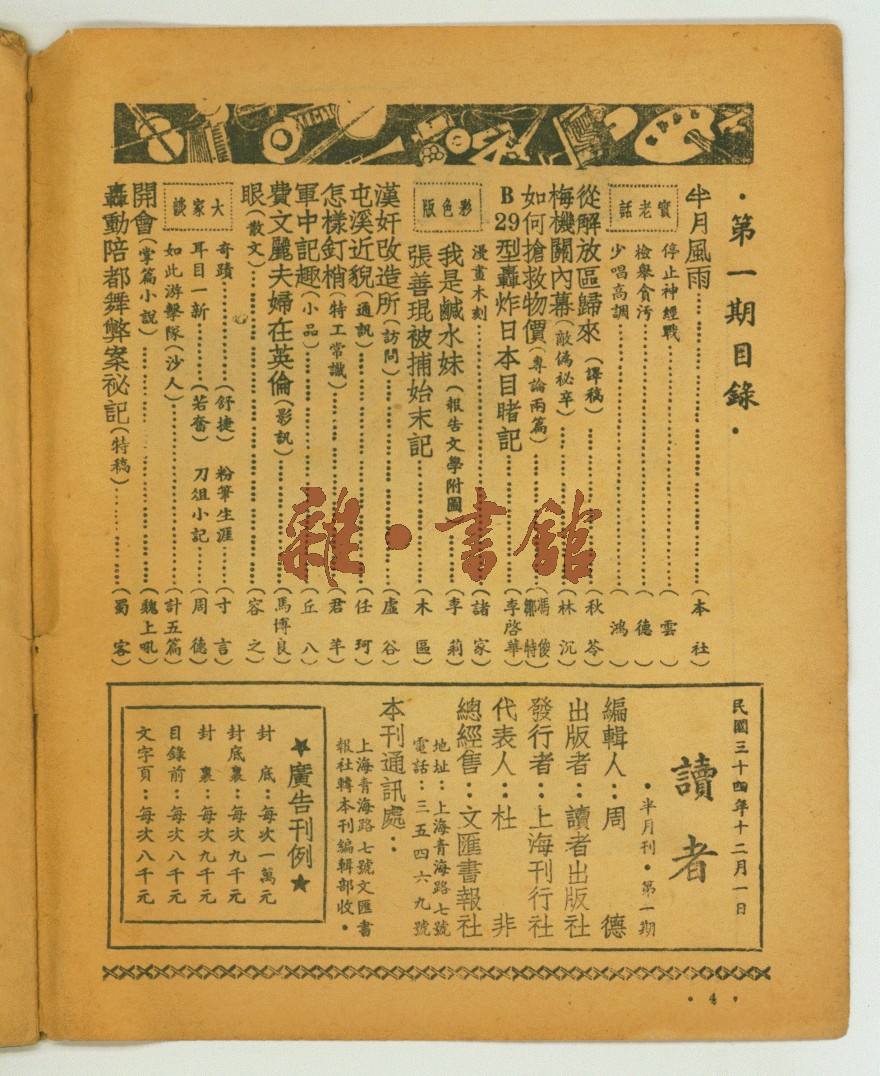 •第一期目錄•
半月風雨……(本社)
實老話
停止神經戰……(雲)
檢舉貪污……(德)
少唱高調……(鴻)
從解放區歸來(譯稿)……(秋苓)
梅機關內幕(敵偽祕辛)……(林沉)
如何搶救物價(專論兩篇)……(馮俊 鄒特)
B29型轟炸日本目睹記……(李啓華)
影色版
漫畫木刻……(諸家)
我是鹹水妹(報告文學附圖)……(李莉)
張善琨被捕始末記……(木區)
漢奸改造所(訪問)……(虛谷)
屯溪近貌(通訊)……(任珂)
怎樣釘梢(特工常識)……(君羊)
軍中記趣(小品)……(丘八)
費文麗夫婦在英倫(影訊)……(馬博良)
眼(散文)……(容之)
大家談
奇蹟……(舒捷) 粉筆生涯……(寸言)
耳目一新……(若奮) 刀俎小記……(周德)
如此游擊隊(沙人)……(計五篇)
開會(掌篇小說)……(魏上吼)
轟動陪都舞弊案祕記(特稿)……(蜀客)
民國三十四年十二月一日
讀者
•半月刊•第一期
編輯人:周德
出版者:讀者出版社
發行者:上海刊行社
代表人:杜非
總經售:文匯書報社
地址:上海青海路七號
電話:三五四六九號
本刊通訊處:
上海青海路七號文匯書
報社轉本刊編輯部收•
★廣告刊例★
封底:每次一萬元
封底裏:每次九千元
封裏:每次九千元
目錄前:每次八千元
文字頁:每次八千元
•4•
雜•書館